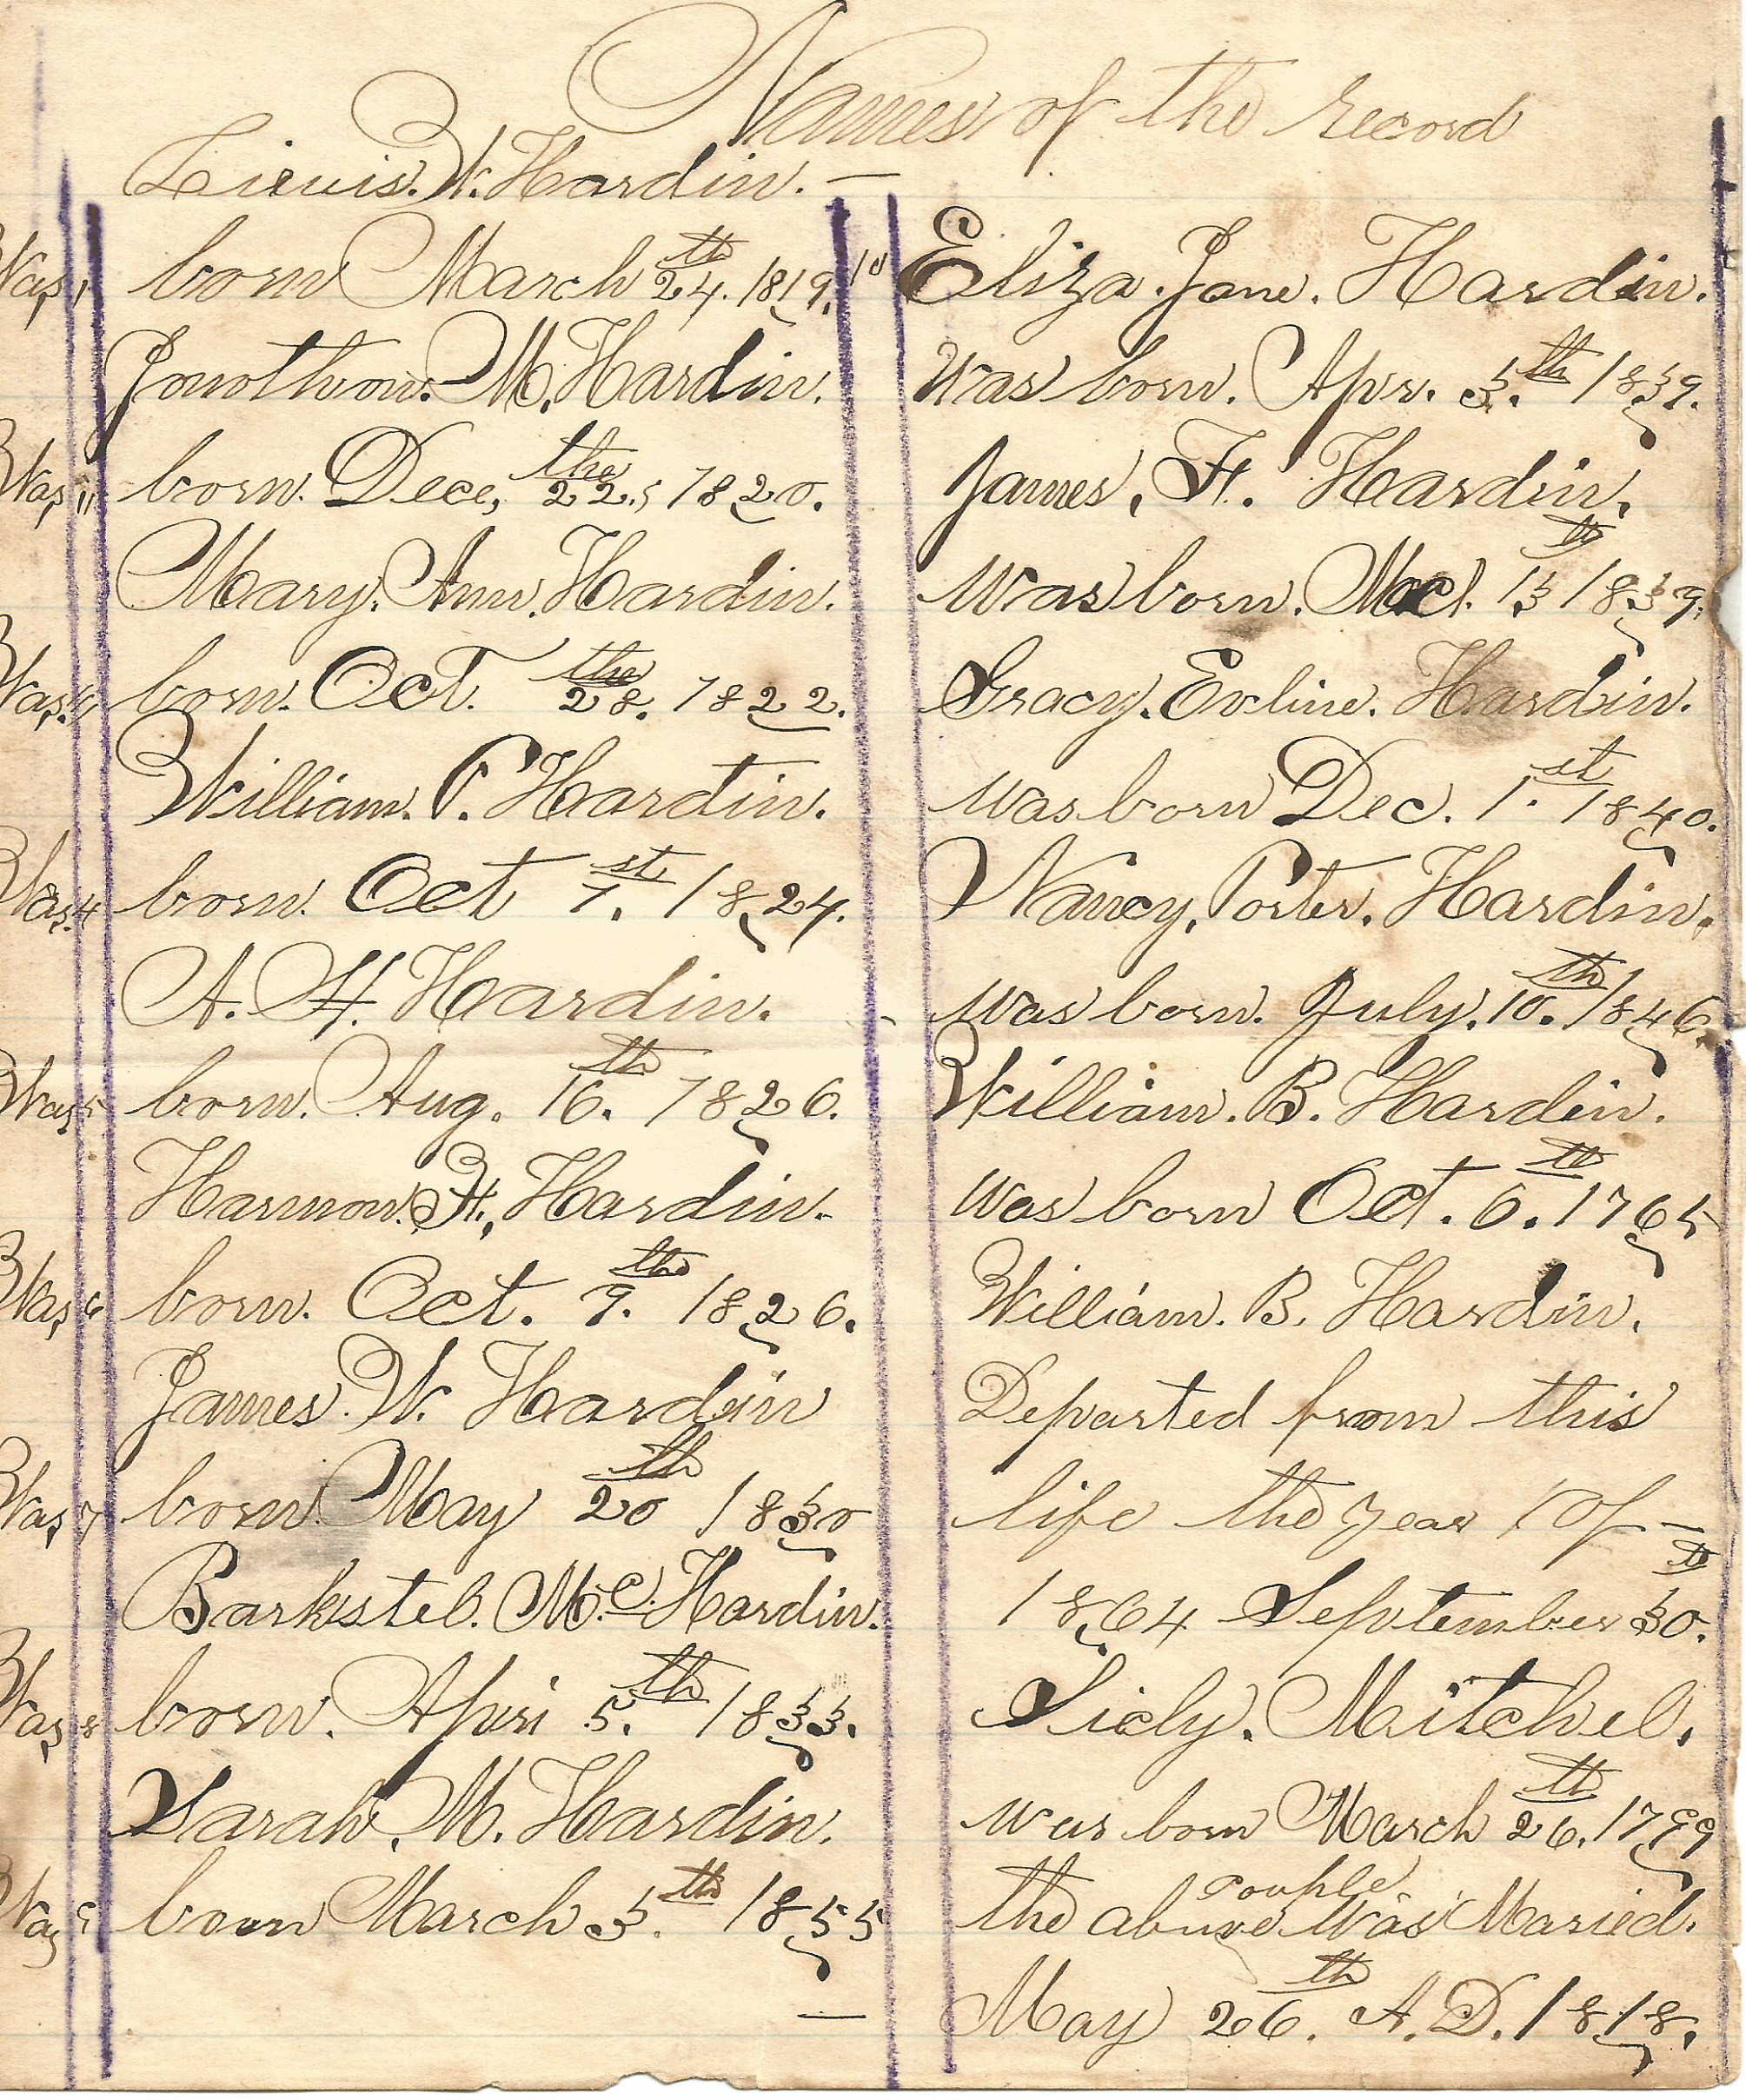 Names of the record
Lieuis. W. Hardin. —
Was, 1 born March 24.th 1819.
Jonothon. M. Hardin.
Was, 11 born. Dece, 22.the, 1820.
Mary. Ann. Hardin.
Was. born. Oct. 28.the 1822.
William. P. Hardin.
Was. 4 born. Oct 1.st 1824.
A. H. Hardin.
Was, 5 born. Aug. 16.th 1826.
Harmon. H., Hardin.
Was, 6 born. Oct. 9.the 1826.
James. W. Hardin
Was, 7 born May 20th 1830
Barksteb. Mc. Hardin.
Was, 8 born. Apri 5.th 1833.
Sarah, M. Hardin.
Was 9 born March 3.th 1855
—
10 Eliza. Jane. Hardin.
Was born. Apr. 3.th 1839.
James, H. Hardin,
was born. 13th 1839.
Gracy. Evline. Hardin.
was born Dec. 1.st 1840.
Nancy, Porter. Hardin.
was born. July. 10.th 1846.
William. B. Hardin.
was born Oct. 6.th 1765
William. B. Hardin.
Departed from this
life the year Of —
1864 September 30.th
Sicly. Mitchel.
was born March 26.th 1799
the above couple was Maried.
May 26.th A. D. 1818.